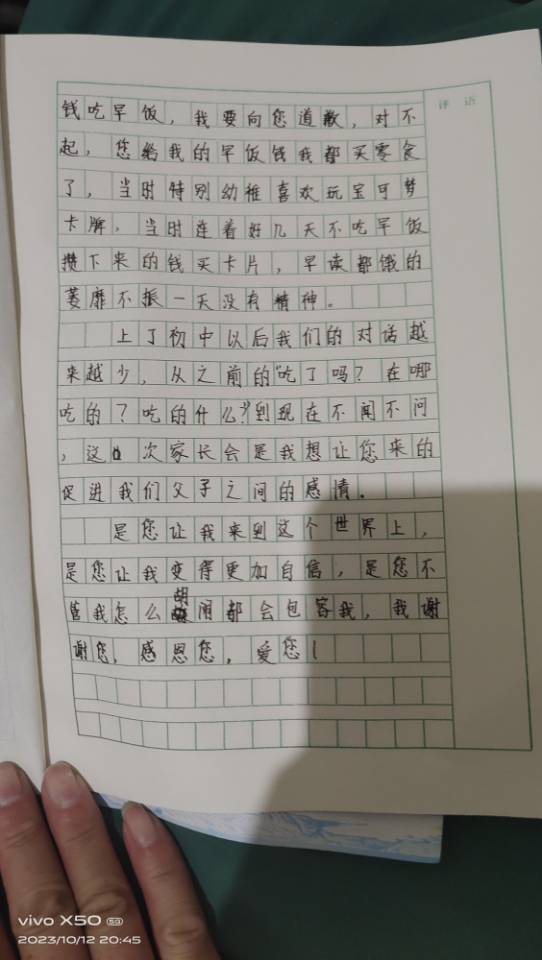 评 语
钱吃早饭，我要向您道歉，对不
起，您给我的早饭钱我都买零食
了，当时特别幼稚喜欢玩宝可梦
卡牌，当时连着好几天不吃早饭
攒下来的钱买卡片，早读都饿的
萎靡不振一天没有精神。
上了初中以后我们的对话越
来越少，从之前的“吃了吗？在哪
吃的？吃的什么？”到现在不闻不问
，这次家长会是我想让您来的
促进我们父子之间的感情。
是您让我来到这个世界上，
是您让我变得更加自信，是您不
管我怎么胡闹都会包容我，我谢
谢您，感恩您，爱您！
vivo X50 5G
2023/10/12 20:45